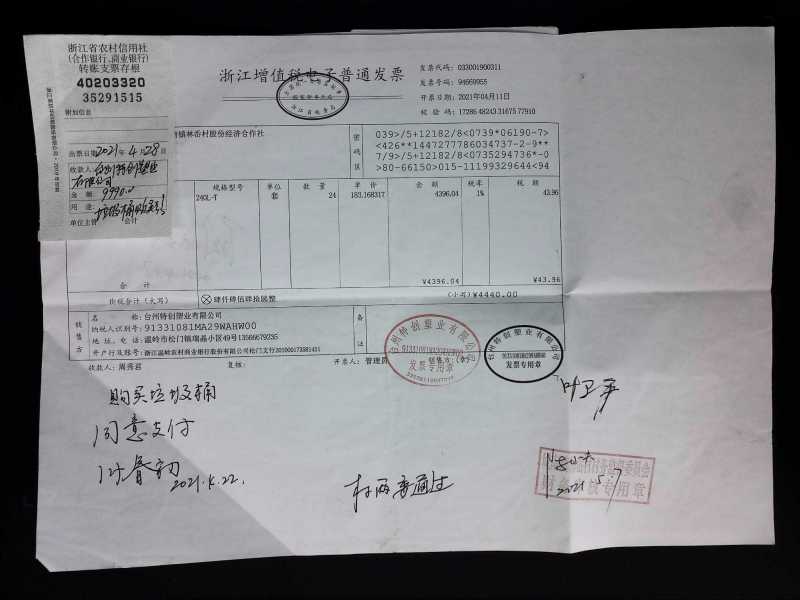 浙江省农村信用社
(合作银行、商业银行)
转账支票存根
40203320
35291515
附加信息
出票日期2021年4月28日
收款人:台州特创塑业
有限公司
金额:
用途:
单位主管 会计
浙江增值税电子普通发票
发票代码:033001900311
发票号码:94669955
开票日期:2021年04月11日
校验码:17286 48243 31675 77910
镇林岙村股份经济合作社
密码区
039>/5+12182/8<0739*06190-7>
<426**1447277786034737-2-9**
7/9>/5+12182/8<0735294736*-0
>80-66150>015-11199329644<94
规格型号 单位 数量 单价 金额 税率 税额
240L-T 套 24 183.168317 4396.04 1% 43.96
合计 ¥4396.04 ¥43.96
价税合计(大写) ⊗肆仟肆佰肆拾圆整 (小写)¥4440.00
销售方
名称:台州特创塑业有限公司
纳税人识别号:91331081MA29WAHW00
地址、电话:温岭市松门镇瑞晶小区49号13566679235
开户行及账号:浙江温岭农村商业银行股份有限公司松门支行201000173581451
备注
收款人:周秀君 复核: 开票人:管理员 销售方:(章)
台州特创塑业有限公司
发票专用章
台州特创塑业有限公司
发票专用章
购买垃圾桶
同意支付
2021.4.22.
村两委通过
2021 5 7
专用章